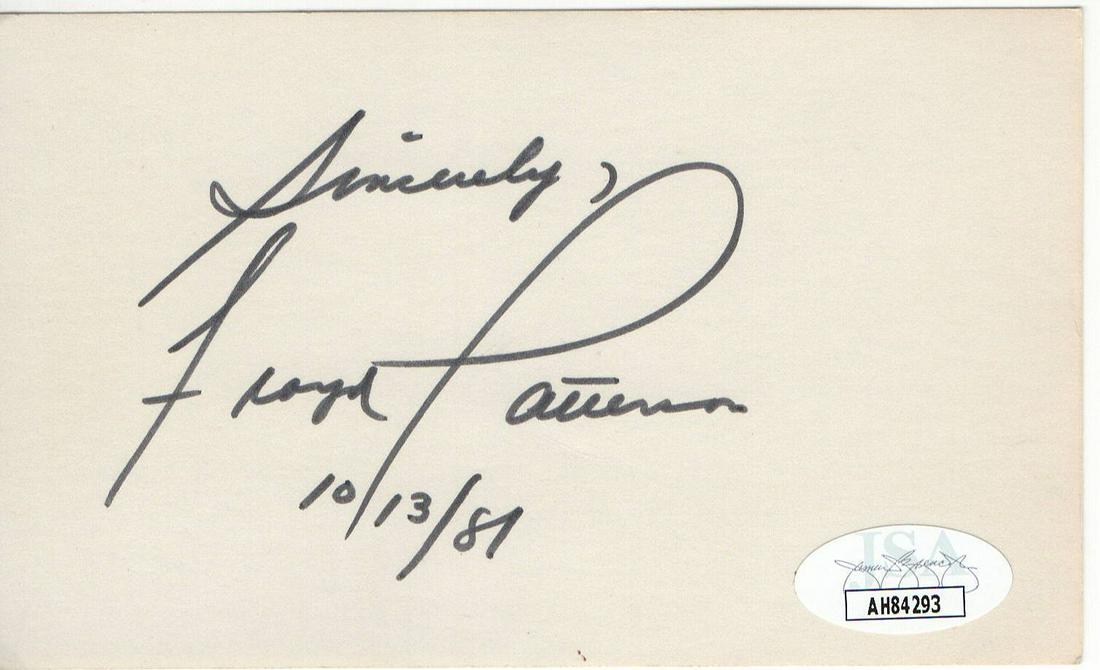 Sincerely,
Floyd Patterson
10/13/81
JSA
AH84293